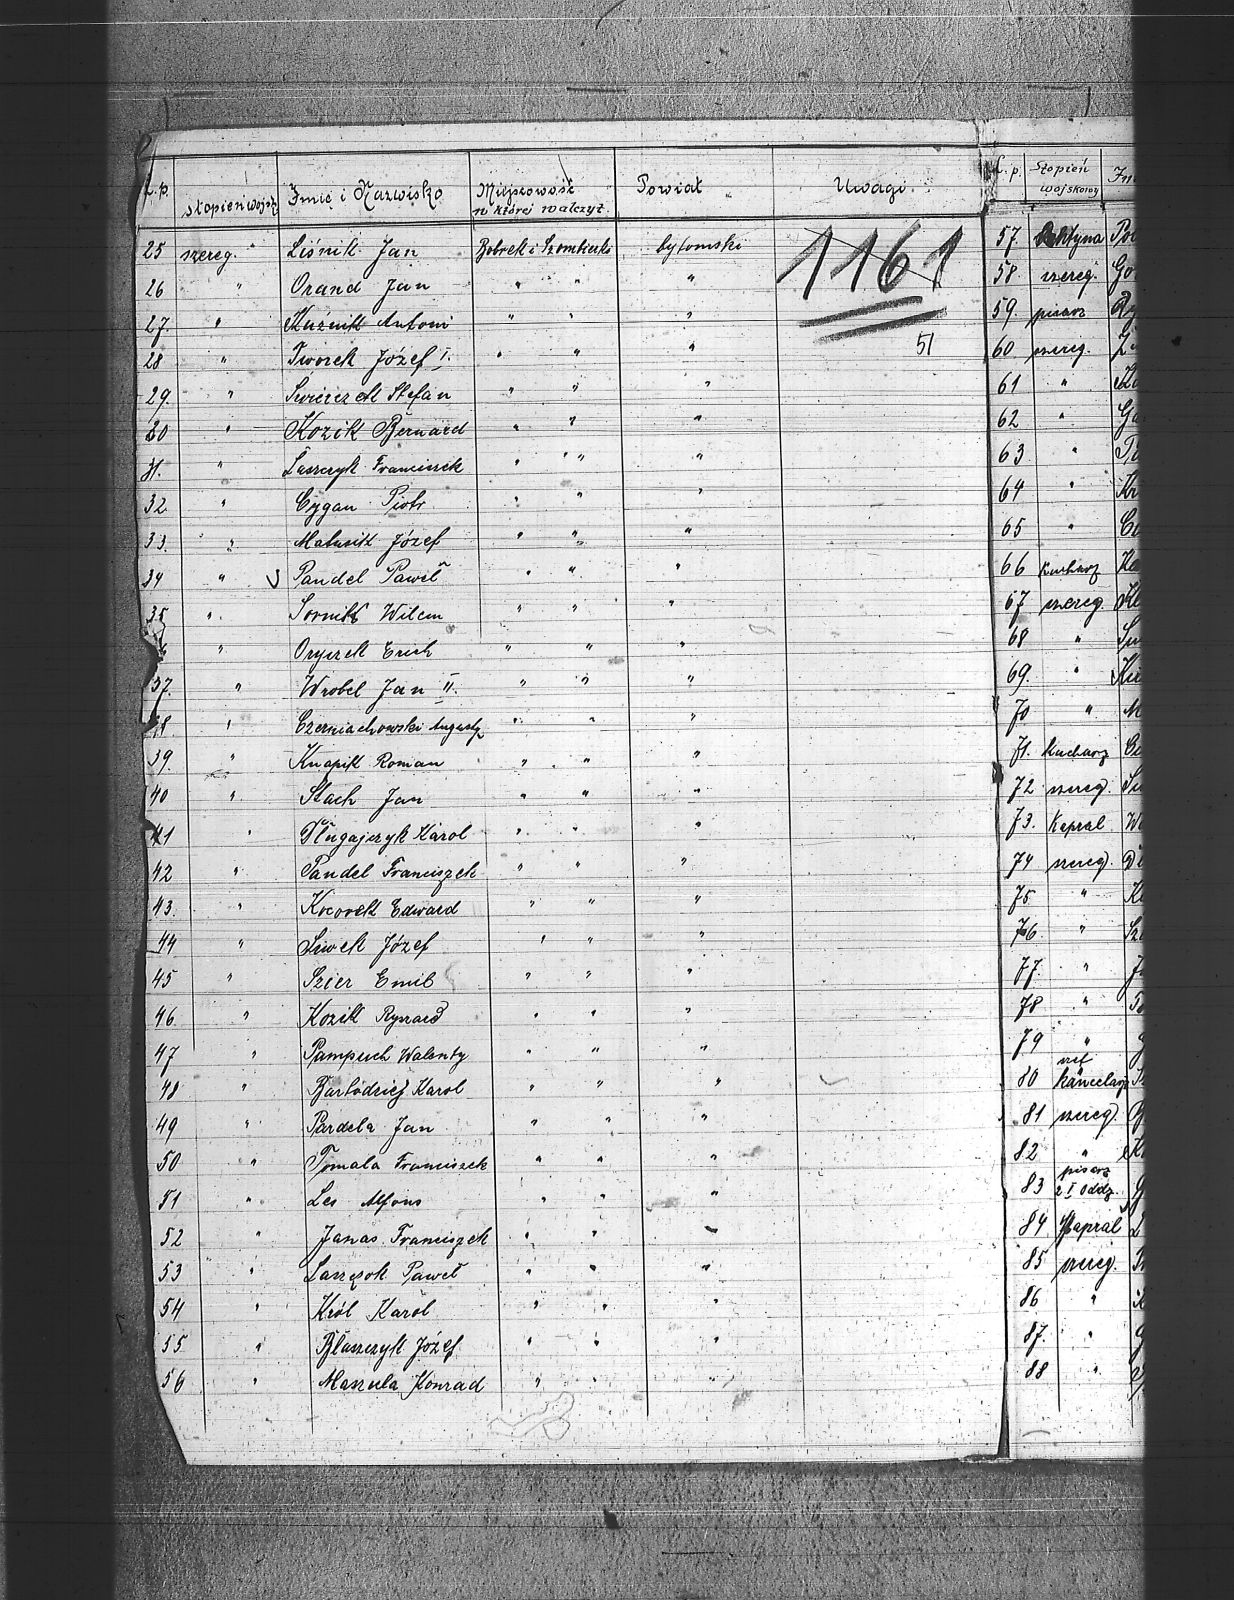 L.p. stopień wojsk. Imię i Nazwisko Miejscowość w której walczył. Powiat Uwagi
1161
51
25 szereg. Liśnik Jan Bobrek i Szombierki bytomski
26 " Orand Jan " " "
27. " Kuźnik Antoni " " "
28 " Tworek Józef I. " " "
29. " Świerczek Stefan " " "
30 " Kozik Bernard " " "
31. " Laszczyk Franciszek " " "
32 " Cygan Piotr " " "
33. " Matusik Józef " " "
34 " Pandel Paweł " " "
35 " Sornik Wilem " " "
" Oryszek Erich " " "
37. " Wrobel Jan II. " " "
38 " Czerniachowski Augusty " " "
39. " Knapik Roman " " "
40 " Stach Jan " " "
41 " Długajczyk Karol " " "
42 " Pandel Franciszek " " "
43. " Kocorek Edward " " "
44 " Siwek Józef " " "
45 " Szier Emil " " "
46 " Kozik Ryszard " " "
47 " Pampuch Walenty " " "
48 " Bartodziej Karol " " "
49 " Pardela Jan " " "
50 " Tomala Franciszek " " "
51 " Les Alfons " " "
52 " Janas Franciszek " " "
53 " Laszczok Paweł " " "
54 " Król Karol " " "
55 " Błaszczyk Józef " " "
56 " Maszula Konrad " " "
L.p. Stopień wojskowy
57.
58 szereg.
59. pisarz
60 szereg.
61 "
62 "
63 "
64 "
65 "
66 kucharz
67 szereg.
68 "
69. "
70 "
71. kucharz
72 szereg.
73. kapral
74 szereg.
75 "
76 "
77. "
78 "
79 "
80 szef kancelarji
81 szereg.
82 "
83 pisarz 2 I oddz.
84 kapral
85 szereg.
86 "
87. "
88 "